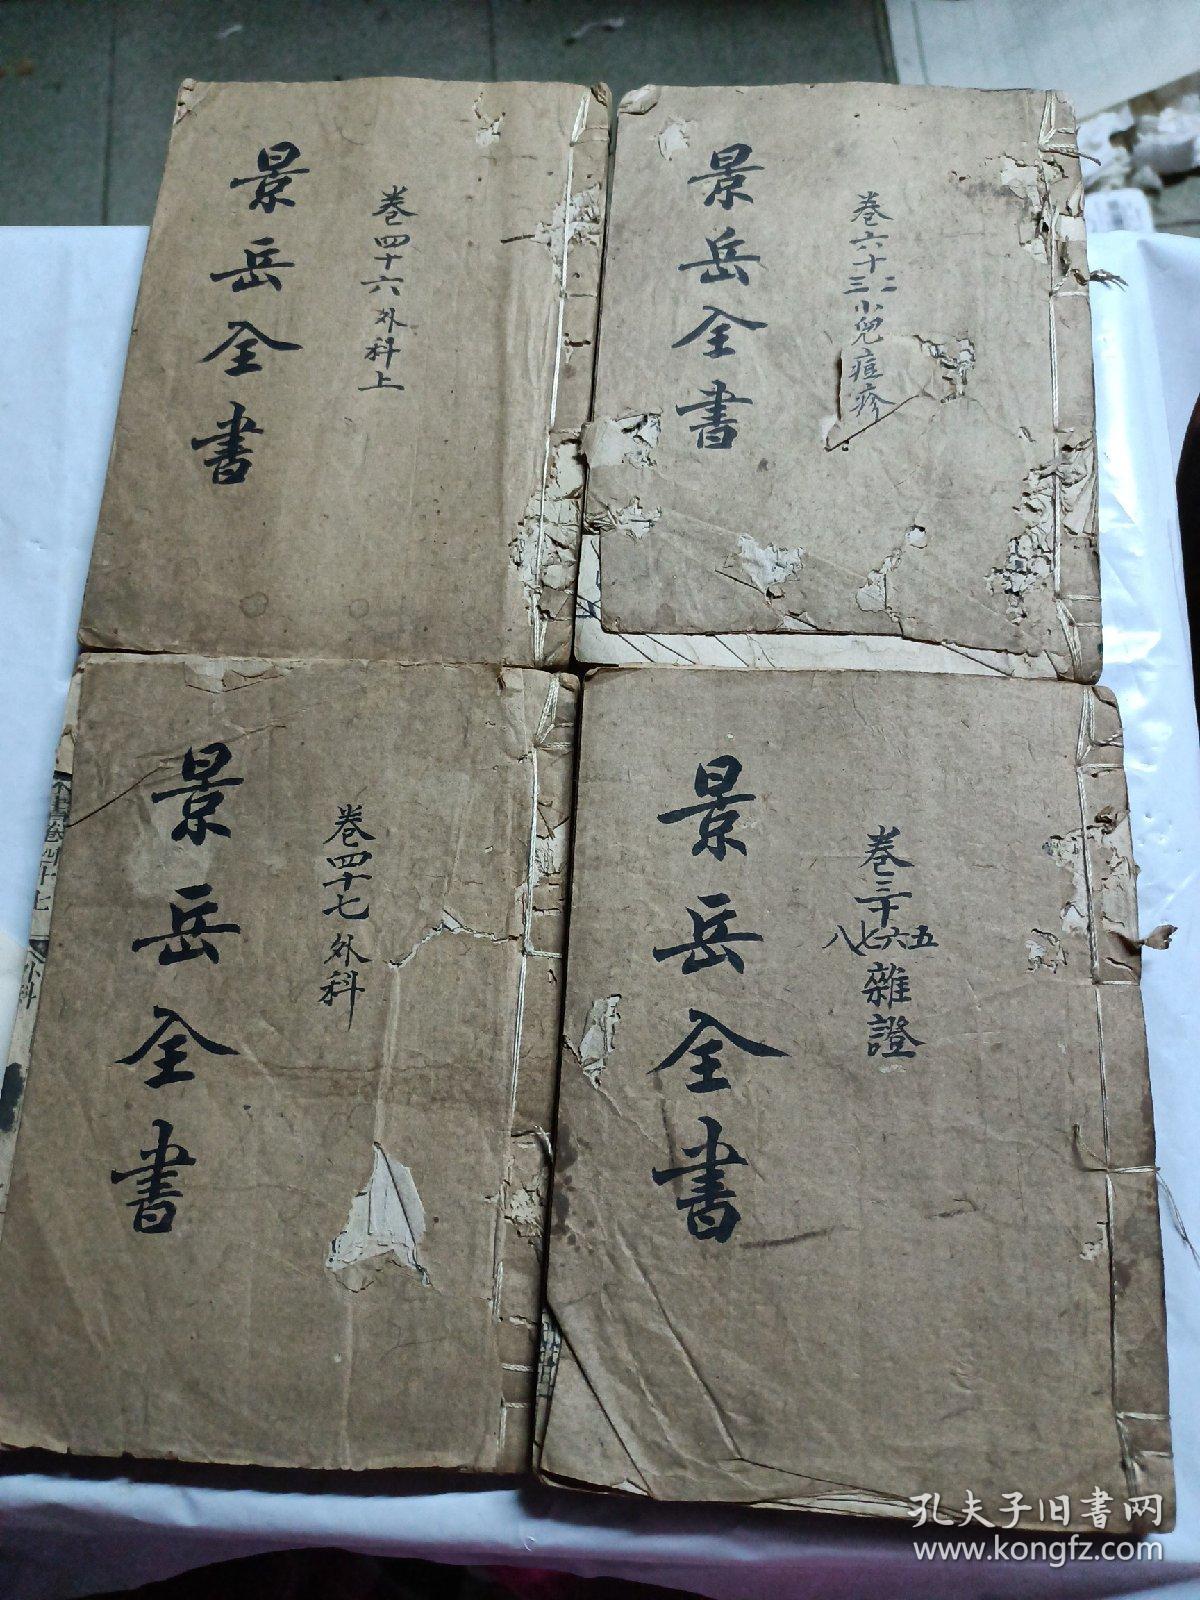 景岳全書
卷四十六外科上
景岳全書
卷六十三二小兒痘疹
景岳全書
卷四十七外科
景岳全書
卷三十五六七八雜證
全書卷四十七
外科
孔夫子旧书网
www.kongfz.com